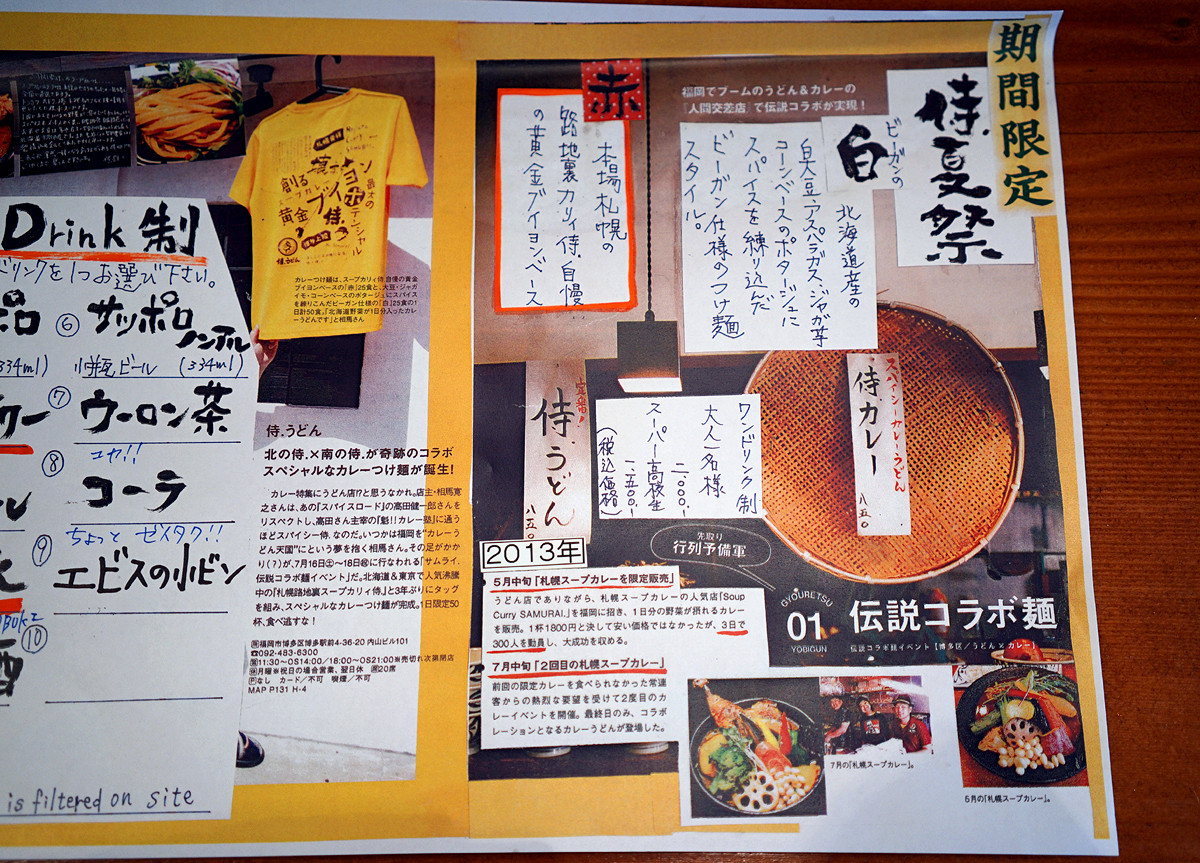 期間限定
侍.夏祭
福岡でブームのうどん&カレーの
「人間交差店」で伝説コラボが実現!
ビーガンの
白
北海道産の
白大豆・アスパラガス・ジャガ芋
コーンベースのポタージュに
スパイスを練り込んだ
ビーガン仕様のつけ麺
スタイル。
赤
本場札幌の
路地裏カリィ侍.自慢
の黄金ブイヨンベース
スパイシーカレーうどん
侍カレー
八五〇
ワンドリンク制
大人一名様
二,〇〇〇-
スーパー高校生
一,五〇〇-
(税込価格)
定番!
侍.うどん
八五〇
先取り
行列予備軍
GYOURETSU
01
YOBIGUN
伝説コラボ麺
伝説コラボ麺イベント【博多区/うどん×カレー】
2013年
5月中旬「札幌スープカレーを限定販売」
うどん店でありながら、札幌スープカレーの人気店「Soup
Curry SAMURAI.」を福岡に招き、1日分の野菜が摂れるカレー
を販売。1杯1800円と決して安い価格ではなかったが、3日で
300人を動員し、大成功を収める。
7月中旬「2回目の札幌スープカレー」
前回の限定カレーを食べられなかった常連
客からの熱烈な要望を受けて2度目のカ
レーイベントを開催。最終日のみ、コラボ
レーションとなるカレーうどんが登場した。
7月の「札幌スープカレー」。
5月の「札幌スープカレー」。
創る
黄金
ブイヨン
侍.
最大の
ポテンシャル
侍.うどん
カレーつけ麺は、スープカリィ侍.自慢の黄金
ブイヨンベースの「赤」25食と、大豆・ジャガ
イモ・コーンベースのポタージュにスパイス
を練りこんだビーガン仕様の「白」25食の1
日計50食。「北海道野菜が1日分入ったカレ
ーうどんです」と相馬さん
侍.うどん
北の侍.×南の侍.が奇跡のコラボ
スペシャルなカレーつけ麺が誕生!
カレー特集にうどん店!?と思うなかれ。店主・相馬寛
之さんは、あの『スパイスロード』の高田健一郎さんを
リスペクトし、高田さん主宰の「魁!!カレー塾」に通う
ほどスパイシー侍.なのだ。いつかは福岡を“カレーう
どん天国”にという夢を抱く相馬さん。その足がかか
り(?)が、7月16日㊏~18日㊗に行なわれる「サムライ.
伝説コラボ麺イベント」だ。北海道&東京で人気沸騰
中の『札幌路地裏スープカリィ侍.』と3年ぶりにタッグ
を組み、スペシャルなカレーつけ麺が完成。1日限定50
杯、食べ逃すな!
福岡市博多区博多駅前4-36-20 内山ビル101
☎092-483-6300
11:30~OS14:00/18:00~OS21:00※売切れ次第閉店
月曜※祝日の場合営業、翌日休 席20席
Pなし カード/不可 喫煙/不可
MAP P131 H-4
Drink 制
ドリンクを1つお選び下さい。
⑥ サッポロ
ノンアル
小瓶ビール (334ml)
334ml)
⑦ ウーロン茶
⑧ コカ!!
コーラ
⑨ ちょっと ゼイタク!!
エビスの小ビン
⑩
酒
is filtered on site